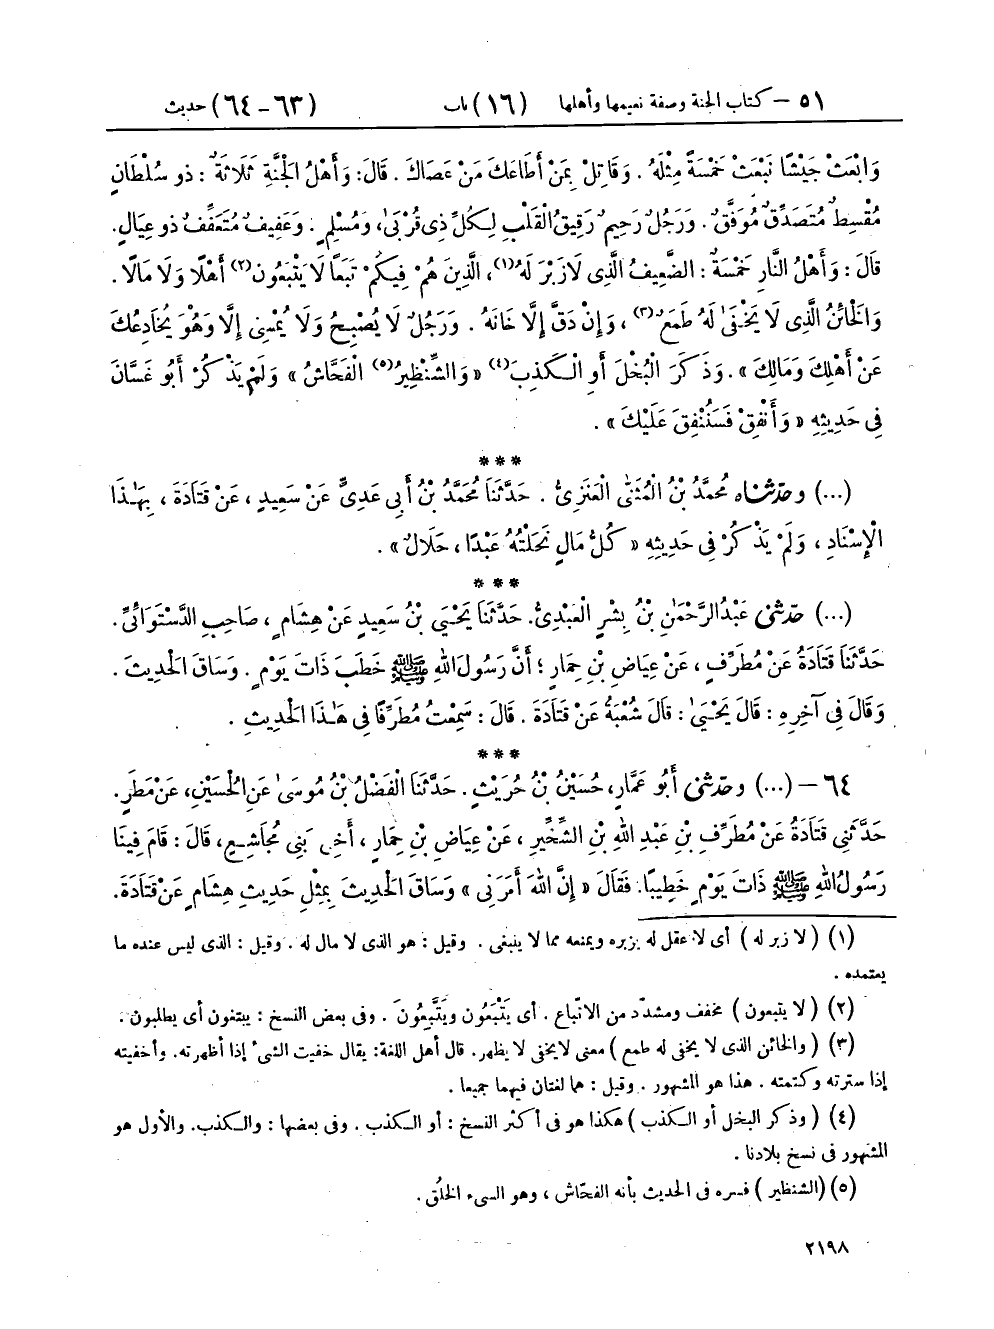 ٥١ – كتاب الجنة وصفة نعيمها وأهلها (١٦) باب (٦٣ – ٦٤) حديث
وَابْعَثْ جَيْشًا نَبْعَثْ خَمْسَةً مِثْلَهُ . وَقَاتِلْ بِمَنْ أَطَاعَكَ مَنْ عَصَاكَ . قَالَ: وَأَهْلُ الْجَنَّةِ ثَلَاثَةٌ : ذو سُلْطَانٍ
مُقْسِطٌ مُتَصَدِّقٌ مُوَفَّقٌ . وَرَجُلٌ رَحِيمٌ رَقِيقُ الْقَلْبِ لِكُلِّ ذِي قُرْبَىٰ، وَمُسْلِمٍ . وَعَفِيفٌ مُتَعَفِّفٌ ذو عِيَالٍ.
قَالَ : وَأَهْلُ النَّارِ خَمْسَةٌ : الضَّعِيفُ الَّذِى لَا زَبْرَ لَهُ(١)، الَّذِينَ هُمْ فِيكُمْ تَبَعًا لَا يَتْبَعُون(٢) أَهْلًا وَلَا مَالًا .
وَالْخَائِنُ الَّذِى لَا يَخْفَىٰ لَهُ طَمَعٌ(٣) ، وَإِنْ دَقَّ إِلَّا خَانَهُ . وَرَجُلٌ لَا يُصْبِحُ وَلَا يُمْسِى إِلَّا وَهُوَ يُخَادِعُكَ
عَنْ أَهْلِكَ وَمَالِكَ » . وَذَكَرَ الْبُخْلَ أَوِ الْكَذِبَ(٤) « وَالشِّنْظِيرُ(٥) الْفَحَّاشُ » وَلَمْ يَذْكُرْ أَبُو غَسَّانَ
فِى حَدِيثِهِ « وَأَنْفِقْ فَسَنُنْفِقَ عَلَيْكَ » .
***
(...) وحدّثناه مُحَمَّدُ بْنُ الْمُثَنَّى الْعَنَزِىُّ . حَدَّثَنَا مُحَمَّدُ بْنُ أَبِى عَدِىٍّ عَنْ سَعِيدٍ ، عَنْ قَتَادَةَ ، بِهَٰذَا
الْإِسْنَادِ ، وَلَمْ يَذْكُرْ فِى حَدِيثِهِ « كُلُّ مَالٍ نَحَلْتُهُ عَبْدًا ، حَلَالٌ » .
***
(...) حدّثنى عَبْدُ الرَّحْمَٰنِ بْنُ بِشْرٍ الْعَبْدِىُّ. حَدَّثَنَا يَحْيَىٰ بْنُ سَعِيدٍ عَنْ هِشَامٍ ، صَاحِبِ الدَّسْتَوَائِىِّ .
حَدَّثَنَا قَتَادَةُ عَنْ مُطَرِّفٍ ، عَنْ عِيَاضِ بْنِ حِمَارٍ ؛ أَنَّ رَسُولَ اللهِ ﷺ خَطَبَ ذَاتَ يَوْمٍ . وَسَاقَ الْحَدِيثَ .
وَقَالَ فِى آخِرِهِ : قَالَ يَحْيَىٰ : قَالَ شُعْبَةُ عَنْ قَتَادَةَ . قَالَ : سَمِعْتُ مُطَرِّفًا فِى هَٰذَا الْحَدِيثِ .
***
٦٤ – (...) وحدّثنى أَبُو عَمَّارٍ، حُسَيْنُ بْنُ حُرَيْثٍ . حَدَّثَنَا الْفَضْلُ بْنُ مُوسَىٰ عَنِ الْحُسَيْنِ، عَنْ مَطَرٍ.
حَدَّثَنِى قَتَادَةُ عَنْ مُطَرِّفِ بْنِ عَبْدِ اللهِ بْنِ الشِّخِّيرِ ، عَنْ عِيَاضِ بْنِ حِمَارٍ ، أَخِى بَنِى مُجَاشِعٍ، قَالَ : قَامَ فِينَا
رَسُولُ اللهِ ﷺ ذَاتَ يَوْمٍ خَطِيبًا. فَقَالَ « إِنَّ اللهَ أَمَرَنِى » وَسَاقَ الْحَدِيثَ بِمِثْلِ حَدِيثِ هِشَامٍ عَنْ قَتَادَةَ.
(١) ( لا زبر له ) أى لا عقل له يزبره ويمنعه مما لا ينبغى . وقيل : هو الذى لا مال له . وقيل : الذى ليس عنده ما
يعتمده .
(٢) ( لا يتبعون ) مخفف ومشدّد من الاتباع . أى يَتْبَعُون ويَتَّبِعُونَ . وفى بعض النسخ : يبتغون أى يطلبون .
(٣) ( والخائن الذى لا يخفى له طمع ) معنى لا يخفى لا يظهر. قال أهل اللغة: يقال خفيت الشىء إذا أظهرته. وأخفيته
إذا سترته وكتمته . هذا هو المشهور . وقيل : هما لغتان فيهما جميعا .
(٤) ( وذكر البخل أو الكذب ) هكذا هو فى أكثر النسخ : أو الكذب . وفى بعضها : والكذب. والأول هو
المشهور فى نسخ بلادنا .
(٥) ( الشنظير ) فسره فى الحديث بأنه الفحّاش ، وهو السىء الخُلُق .
٢١٩٨